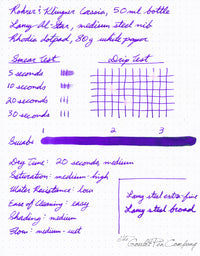 Rohrer & Klingner Cassia, 50ml bottle
Lamy Al-Star, medium steel nib
Rhodia dotpad, 80g white paper
Smear Test
Drip Test
5 seconds
10 seconds
20 seconds
30 seconds
1 2 3
Swabs
Dry Time: 20 seconds medium
Saturation: medium-high
Water Resistance: low
Ease of Cleaning: easy
Shading: medium
Flow: medium-wet
Lamy steel extra-fine
Lamy steel broad
the Goulet Pen Company